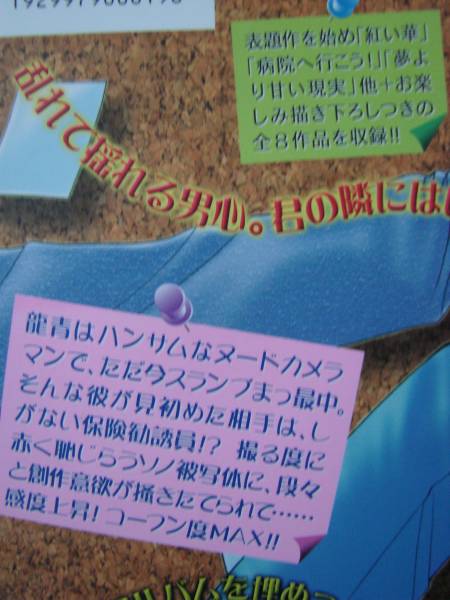 表題作を始め「紅い華」
「病院へ行こう!」「夢よ
り甘い現実」他+お楽
しみ描き下ろしつきの
全8作品を収録!!
乱れて揺れる男心。君の隣には
龍青はハンサムなヌードカメラ
マンで、ただ今スランプまっ最中。
そんな彼が見初めた相手は、し
がない保険勧誘員!? 撮る度に
赤く恥じらうソノ被写体に、段々
と創作意欲が掻きたてられて……
感度上昇! コーフン度MAX!!
ルバムを埋めう